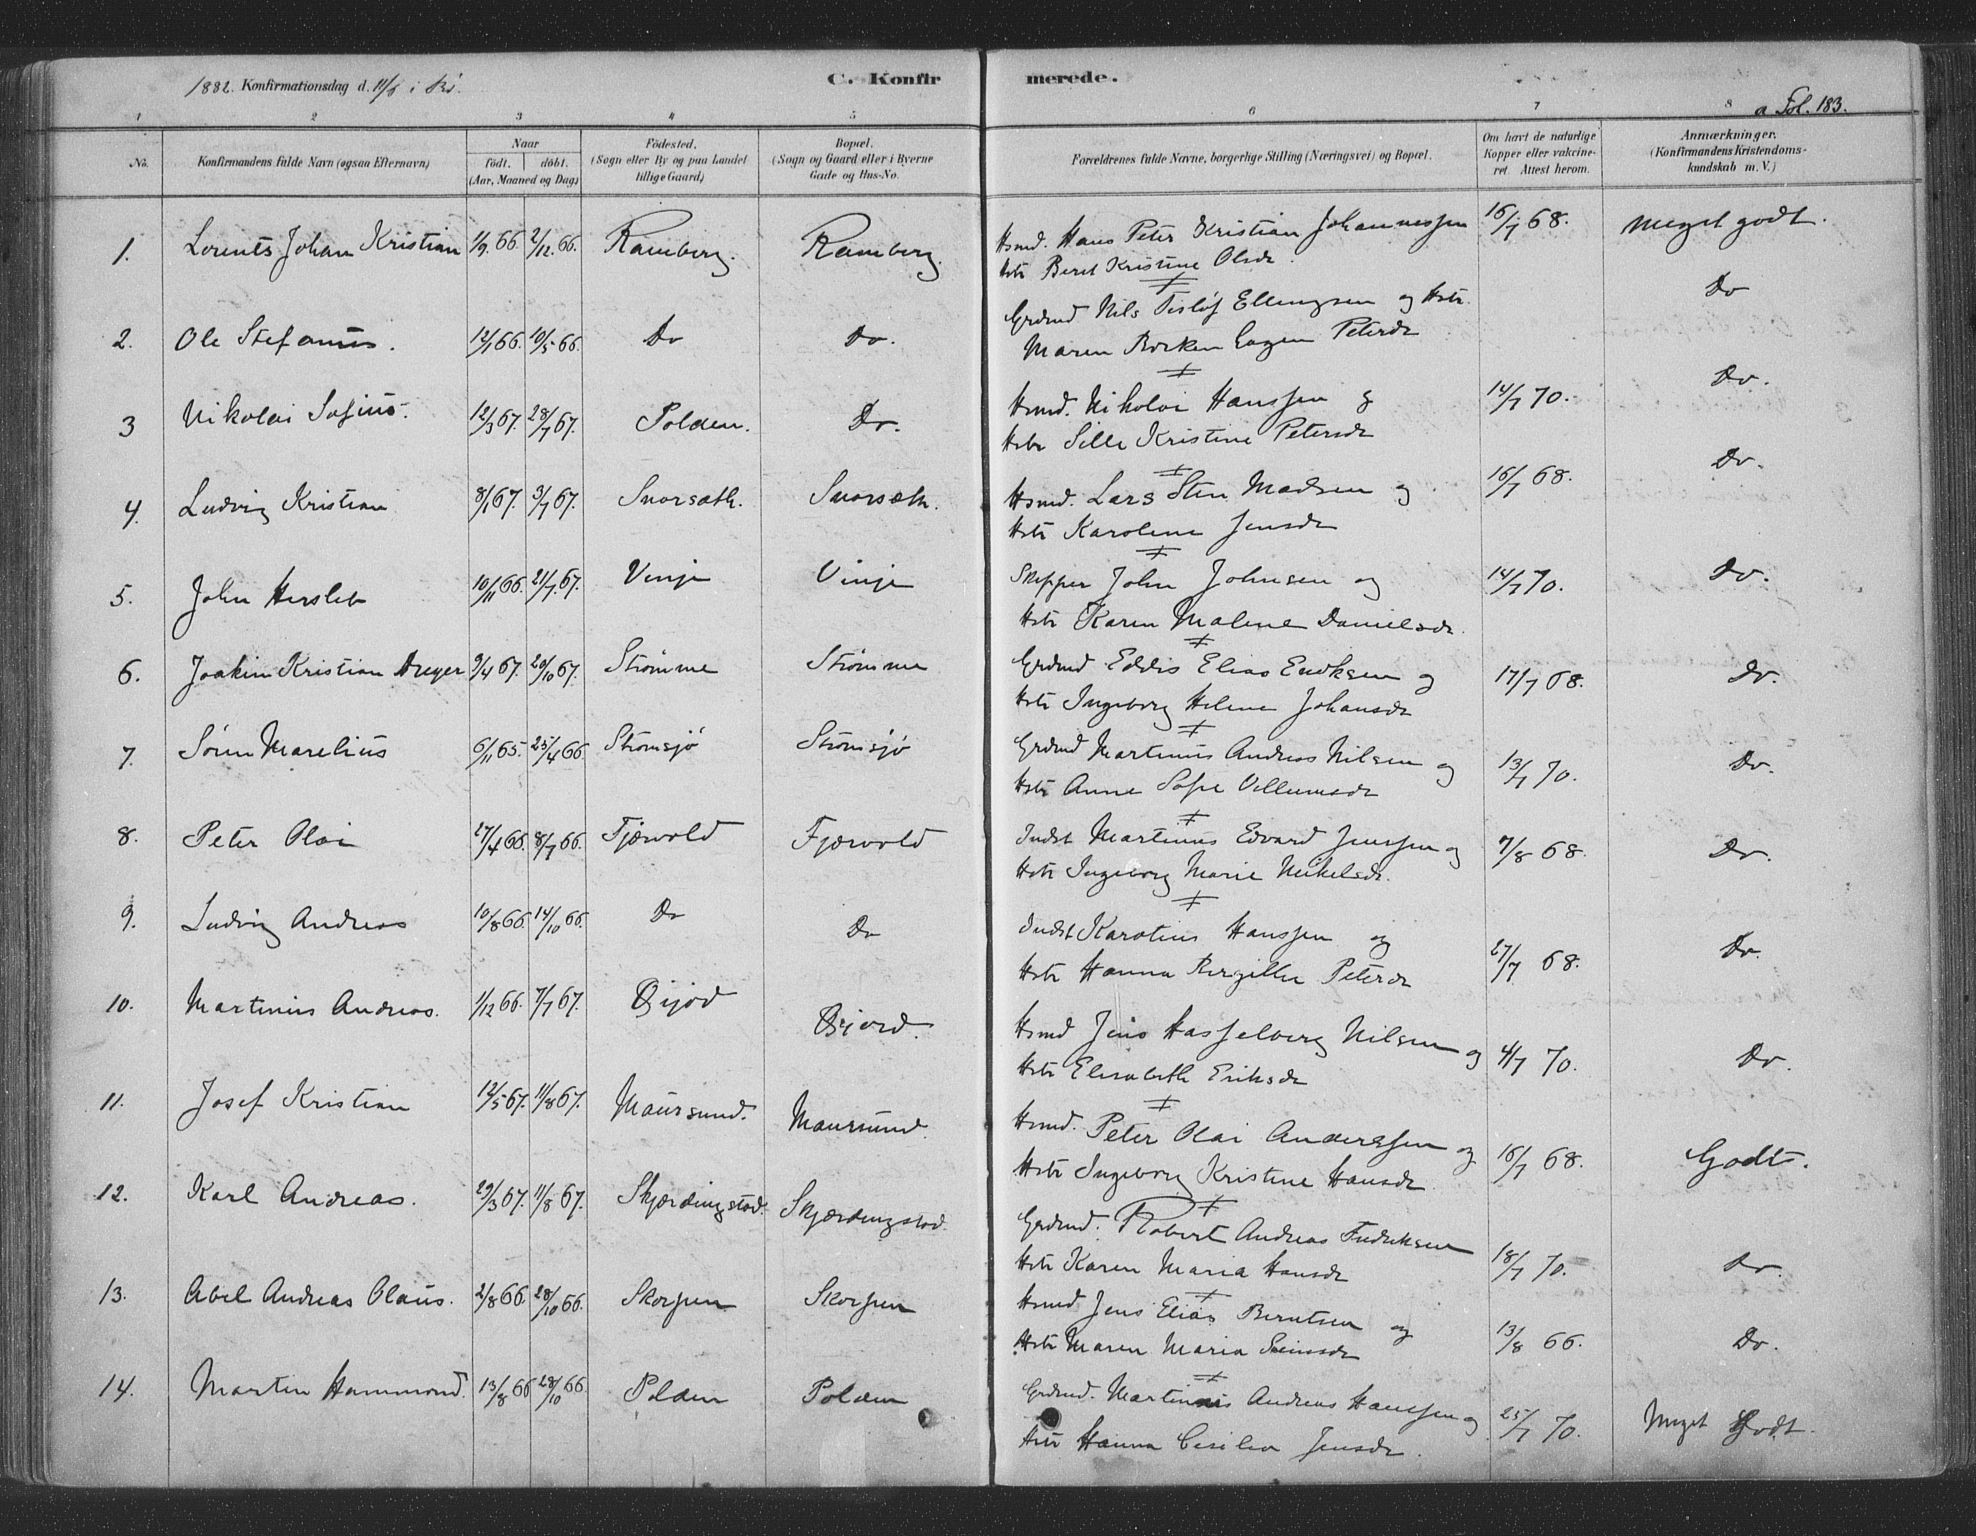 1882. Konfirmationsdag d. 11/6 i Bø.
C. Konfirmerede.
a Fol. 183.
1 2 3 4 5 6 7 8
No. Konfirmandens fulde Navn (ogsaa Efternavn) Naar født. døbt. (Aar, Maaned og Dag) Fødested. (Sogn eller By og paa Landet tillige Gaard.) Bopæl. (Sogn og Gaard eller i Byerne Gade og Hus-No. Forældrenes fulde Navne, borgerlige Stilling (Næringsvei) og Bopæl. Om havt de naturlige Kopper eller vakcineret. Attest herom. Anmærkninger. (Konfirmandens Kristendomskundskab m. V.)
1. Lorents Johan Kristian 1/9 66 2/12 66. Ramberg. Ramberg. Hsmd. Hans Peter Kristian Johannessen 16/7 68. Meget godt.
Hstr Beret Kristine Olsdr.
2. Ole Stefanus. 12/1 66. 10/5 66. Do Do. Grdmd Nils Tisløf Ellingsen og Hstr. Do
Maren Birken Eagen Petersdr
3 Nikolai Sofius. 12/3 67. 28/7 67. Polden. Do. Hsmd. Nikolai Hanssen og 14/7 70. Do.
Hstr Sille Kristine Petersdr
4. Ludvig Kristian 8/1 67. 3/7 67. Snorsæth. Snorsæth. Hsmd. Lars Sten Madsen og 16/7 68. Do.
Hstr Karoline Jensdr
5. John Hersleb 10/11 66. 21/7 67. Vinje Vinje Skipper John Johnsen og 14/7 70. Do.
Hstr Karen Malene Danielsdr.
6. Joakim Kristian Dreyer 9/4 67. 20/10 67. Strømme Strømme Grdmd Eddis Elias Enoksen og 17/7 68. Do.
Hstr Ingeborg Helene Johansdr
7. Søren Marelius 6/11 65. 25/4 66 Strømsjø Strømsjø Grdmd Martinus Andreas Nilsen og 13/7 70. Do.
Hstr Anne Sofie Villumsdr
8. Peter Olai 27/4 66. 8/7 66. Fjærvold Fjærvold Indst Martinus Edvard Jenssen og 7/8 68. Do.
Hstr Ingeborg Marie Mikelsdr.
9. Ludvig Andreas 10/8 66. 14/10 66. Do Do Indst Karolius Hanssen og 27/7 68. Do.
Hstr Hanna Pergitte Petersdr
10. Martinius Andreas. 1/12 66. 7/7 67. Bijord Bijord. Hsmd Jens Hasselberg Nilsen og 4/7 70. Do.
Hstr Elisabeth Eriksdr
11. Josef Kristian 12/5 67. 11/8 67. Maursund. Maursund. Hsmd. Peter Olai Anderssen og 16/7 68. Godt.
Hstr Ingeborg Kristine Hansdr.
12. Karl Andreas. 29/3 67. 11/8 67. Skjærdingstad. Skjærdingstad. Grdmd. Robert Andreas Fredriksen 18/7 70. Do.
Hstr Karen Maria Hansdr
13. Abel Andreas Olaus. 2/8 66. 28/10 66. Skorpen Skorpen Hsmd Jens Elias Berntsen og 13/8 66. Do.
Hstr Maren Maria Simonsdr
14. Martin Hammond. 13/8 66 28/10 66. Polden Polden Grdmd. Martinus Andreas Hanssen og 25/7 70. Meget Godt.
Hstr Hanna Cesilia Jensdr.